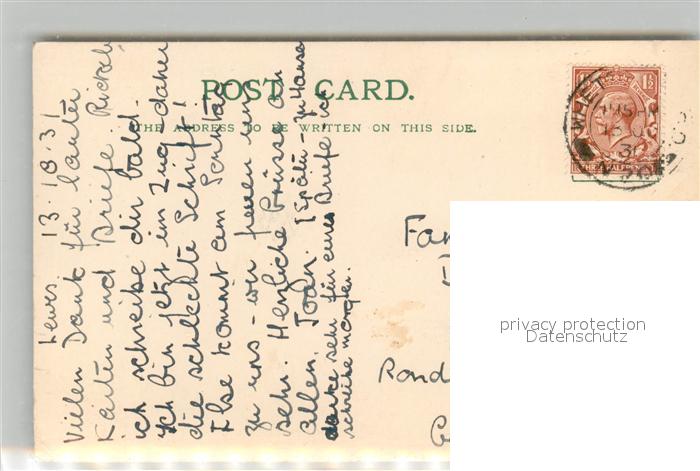 POST CARD.
THE ADDRESS TO BE WRITTEN ON THIS SIDE.
Lewes 13.10.31
Vielen Dank für lauter
Karten und Briefe.
ich schreibe dir bald.
Ich bin jetzt im Zug daher
die schlechte Schrift!
Ilse kommt am Sonntag
zu uns - wir freuen uns
sehr. Herzliche Grüsse an
allen. Joan. [Später - zu Hause
danke sehr für eines Briefe - ich
schreibe morgen.
1½
THREE HALFPENCE
13 OC
31
Fam
Rond
privacy protection
Datenschutz